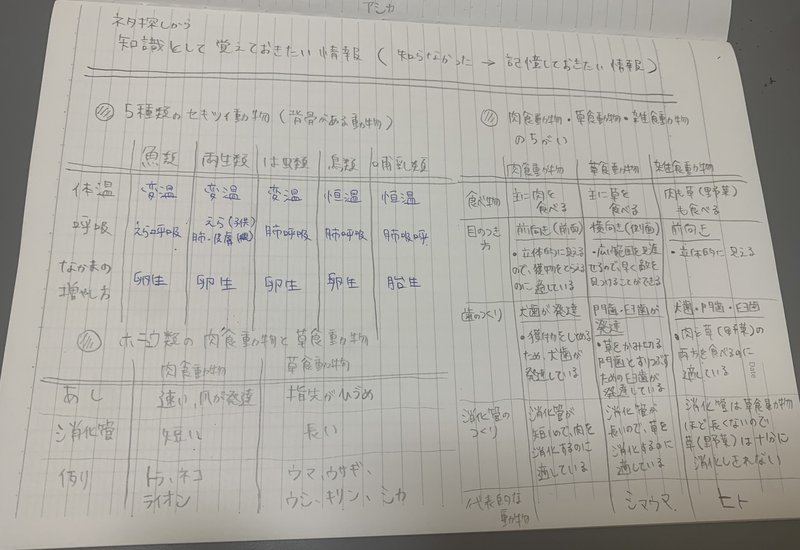 アシカ
ネタ探しから
知識として覚えておきたい情報 ( 知らなかった → 記憶しておきたい情報)
5種類のセキツイ動物 (背骨がある動物)
魚類 両生類 は虫類 鳥類 ホ乳類
体温 変温 変温 変温 恒温 恒温
呼吸 えら呼吸 えら(子供) 肺・皮膚(親) 肺呼吸 肺呼吸 肺呼吸
なかまの増やし方 卵生 卵生 卵生 卵生 胎生
ホニュウ類の肉食動物と草食動物
肉食動物 草食動物
あし 速い、爪が発達 指先がひづめ
消化管 短い 長い
例 トラ、ネコ ウマ、ウサギ、
ライオン ウシ、キリン、シカ
肉食動物・草食動物・雑食動物
のちがい
肉食動物 草食動物 雑食動物
食べ物 主に肉を食べる 主に草を食べる 肉も草(野草)も食べる
目のつき方 前向き(前面) 横向き(側面) 前向き
・立体的に見えるので、獲物をとらえるのに適している
・広い範囲を見渡せるので、早く敵を見つけることができる
・立体的に見える
歯のつくり 犬歯が発達 門歯・臼歯が発達 犬歯・門歯・臼歯
・獲物をしとめるため、犬歯が発達している
・草をかみ切る門歯とすりつぶすための臼歯が発達している
・肉と草(野草)の両方を食べるのに適している
Date
消化管のつくり
消化管が短いので、肉を消化するのに適している
消化管が長いので、草を消化するのに適している
消化管は草食動物ほど長くないので、草(野草)は十分に消化しきれない
代表的な動物 シマウマ ヒト